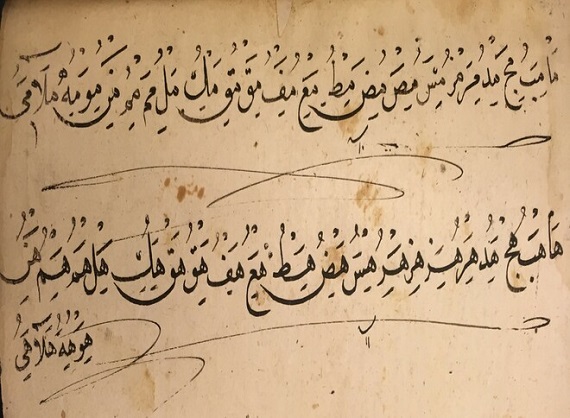 ما مب مج مد مر مز مس مص مض مط مع مف مق مق مك مل مم مم من مو مه ملا مي
ها هب هج هد هر هز هز هر هس هض هط هع هف هق هق هك هل هم هم هن
هو هه هلا هي